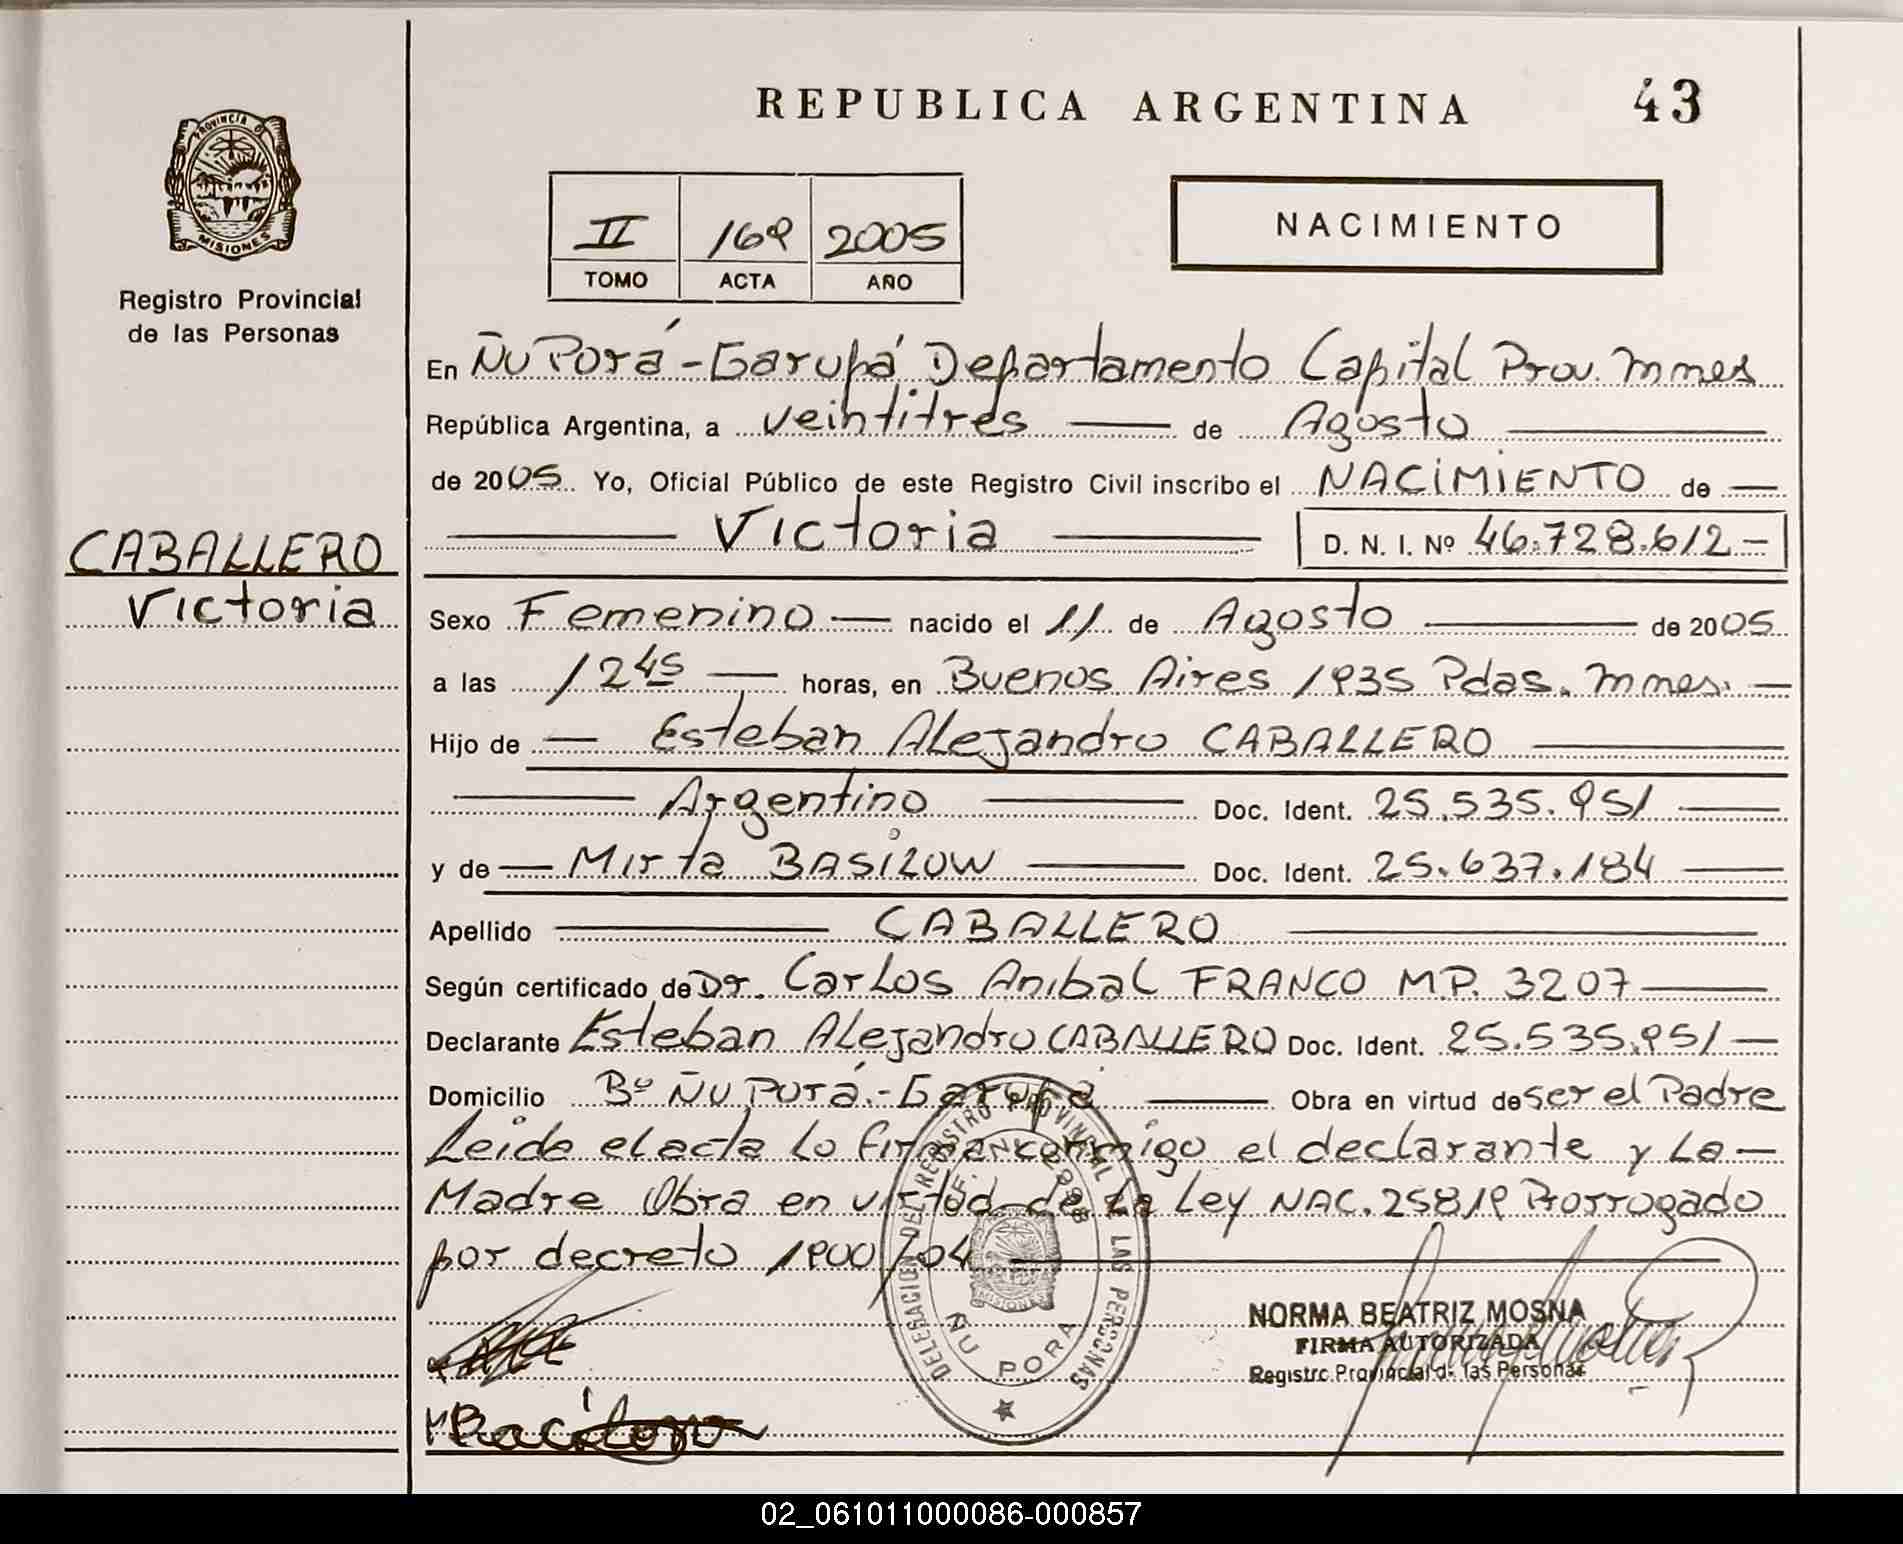 REPUBLICA ARGENTINA
43
PROVINCIA DE
MISIONES
Registro Provincial
de las Personas
II 169 2005
TOMO ACTA AÑO
NACIMIENTO
En Ñu Porá - Garupá Departamento Capital Prov. Mnes
República Argentina, a veintitres de Agosto
de 2005 Yo, Oficial Público de este Registro Civil inscribo el NACIMIENTO de
Victoria D. N. I. Nº 46.728.612
CABALLERO
Victoria
Sexo Femenino nacido el 11 de Agosto de 2005
a las 12 45 horas, en Buenos Aires 1935 Pdas. Mnes.
Hijo de Esteban Alejandro CABALLERO
Argentino Doc. Ident. 25.535.951
y de Mirta BASILOW Doc. Ident. 25.637.184
Apellido CABALLERO
Según certificado de Dr. Carlos Anibal FRANCO M.P. 3207
Declarante Esteban Alejandro CABALLERO Doc. Ident. 25.535.951
Domicilio Bº Ñu Porá - Garupá Obra en virtud de ser el Padre
Leida el acta lo firman conmigo el declarante y La
Madre Obra en virtud de la Ley NAC. 25819 Prorrogado
por decreto 1900/04
DELEGACION DEL REGISTRO PROVINCIAL DE LAS PERSONAS
MISIONES
ÑU PORA
NORMA BEATRIZ MOSNA
FIRMA AUTORIZADA
Registro Provincial de las Personas
02_061011000086-000857